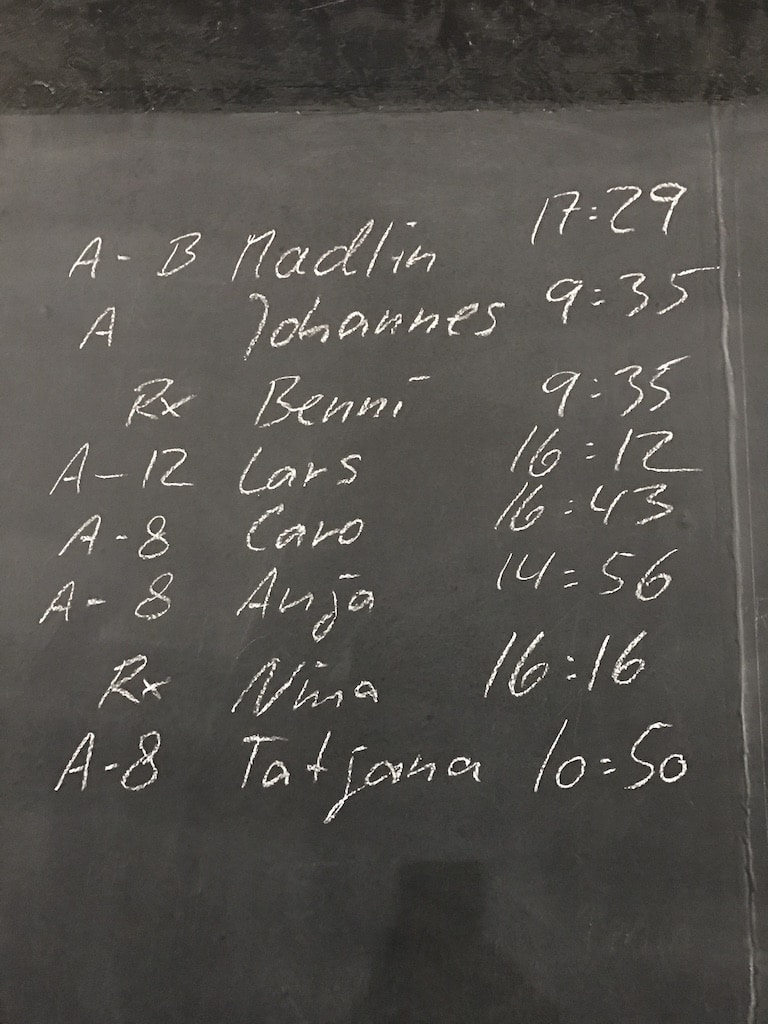 A - B Madlin 17:29
A Johannes 9:35
Rx Benni 9:35
A-12 Lars 16:12
A-8 Caro 16:43
A-8 Anja 14:56
Rx Nina 16:16
A-8 Tatjana 10:50